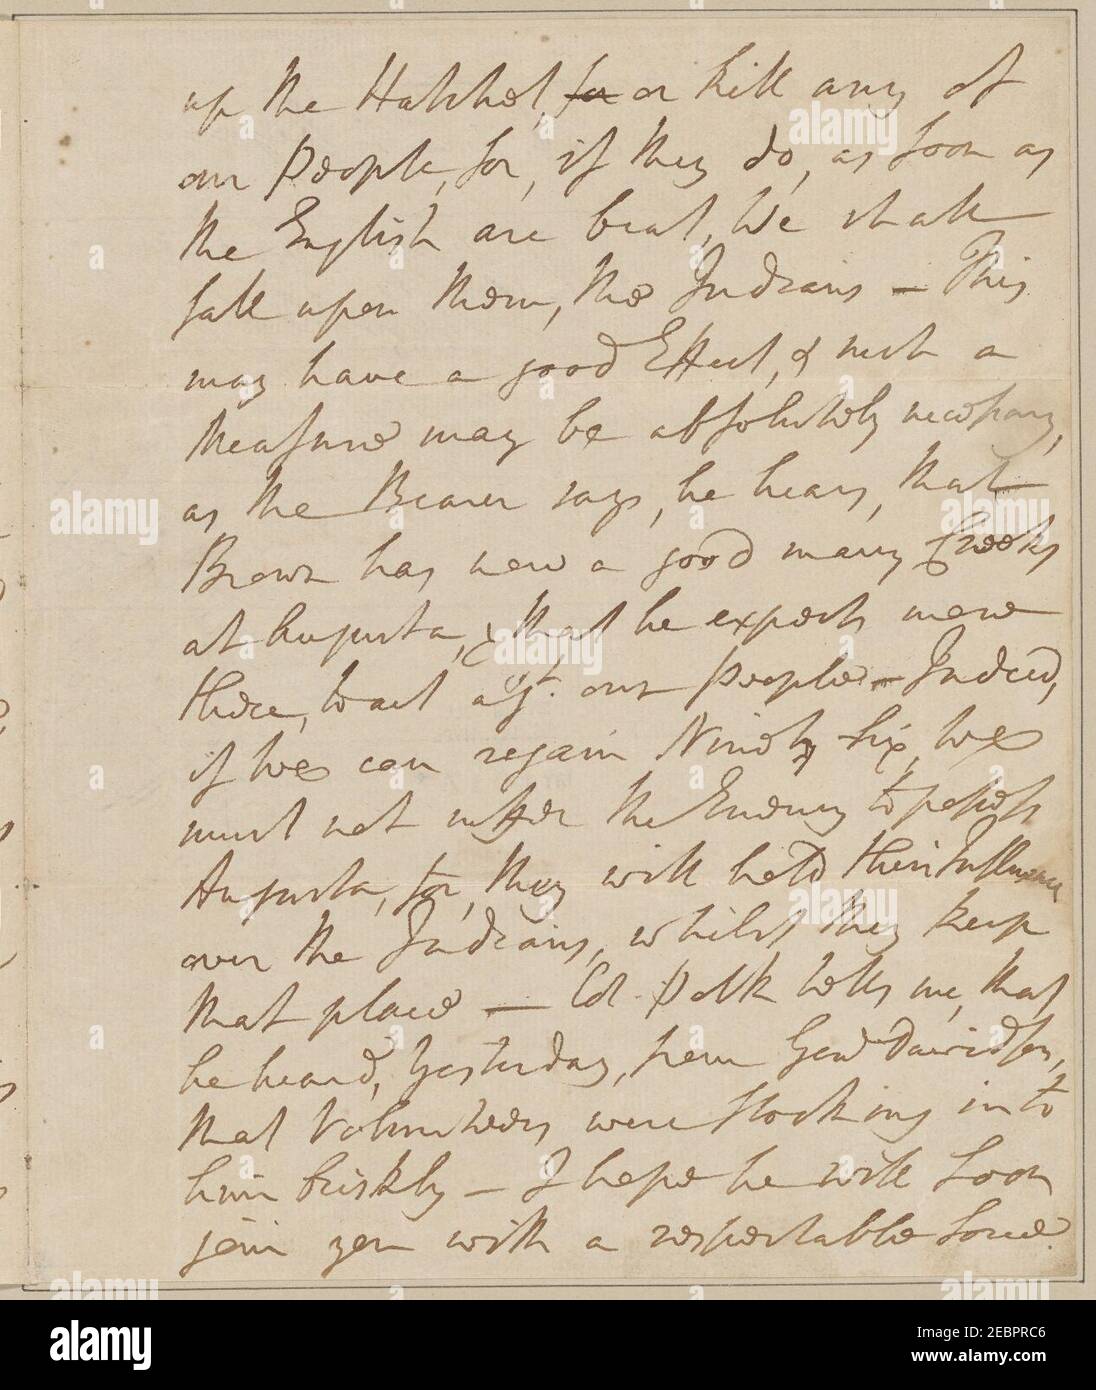 up the Hatchet, for or kill any of
our People, for, if they do, as soon as
the English are beat, We shall
fall upon them, the Indians — This
may have a good Effect, & such a
Measure may be absolutely necessary,
as the Bearer says, he hears, that
Brown has now a good many Creeks
at Augusta, & that he expects more
there, to act agst. our People — Indeed,
if We can regain Ninety Six, We
must not suffer the Enemy to possess
Augusta, for, they will hold their Influence
over the Indians, whilst they keep
that place — Col. Polk tells me, that
he heard, Yesterday, from Genl Davidson,
that Volunteers were flocking in to
him briskly — I hope he will soon
join you with a respectable Force.
alamy
Image ID: 2EBPRC6
www.alamy.com